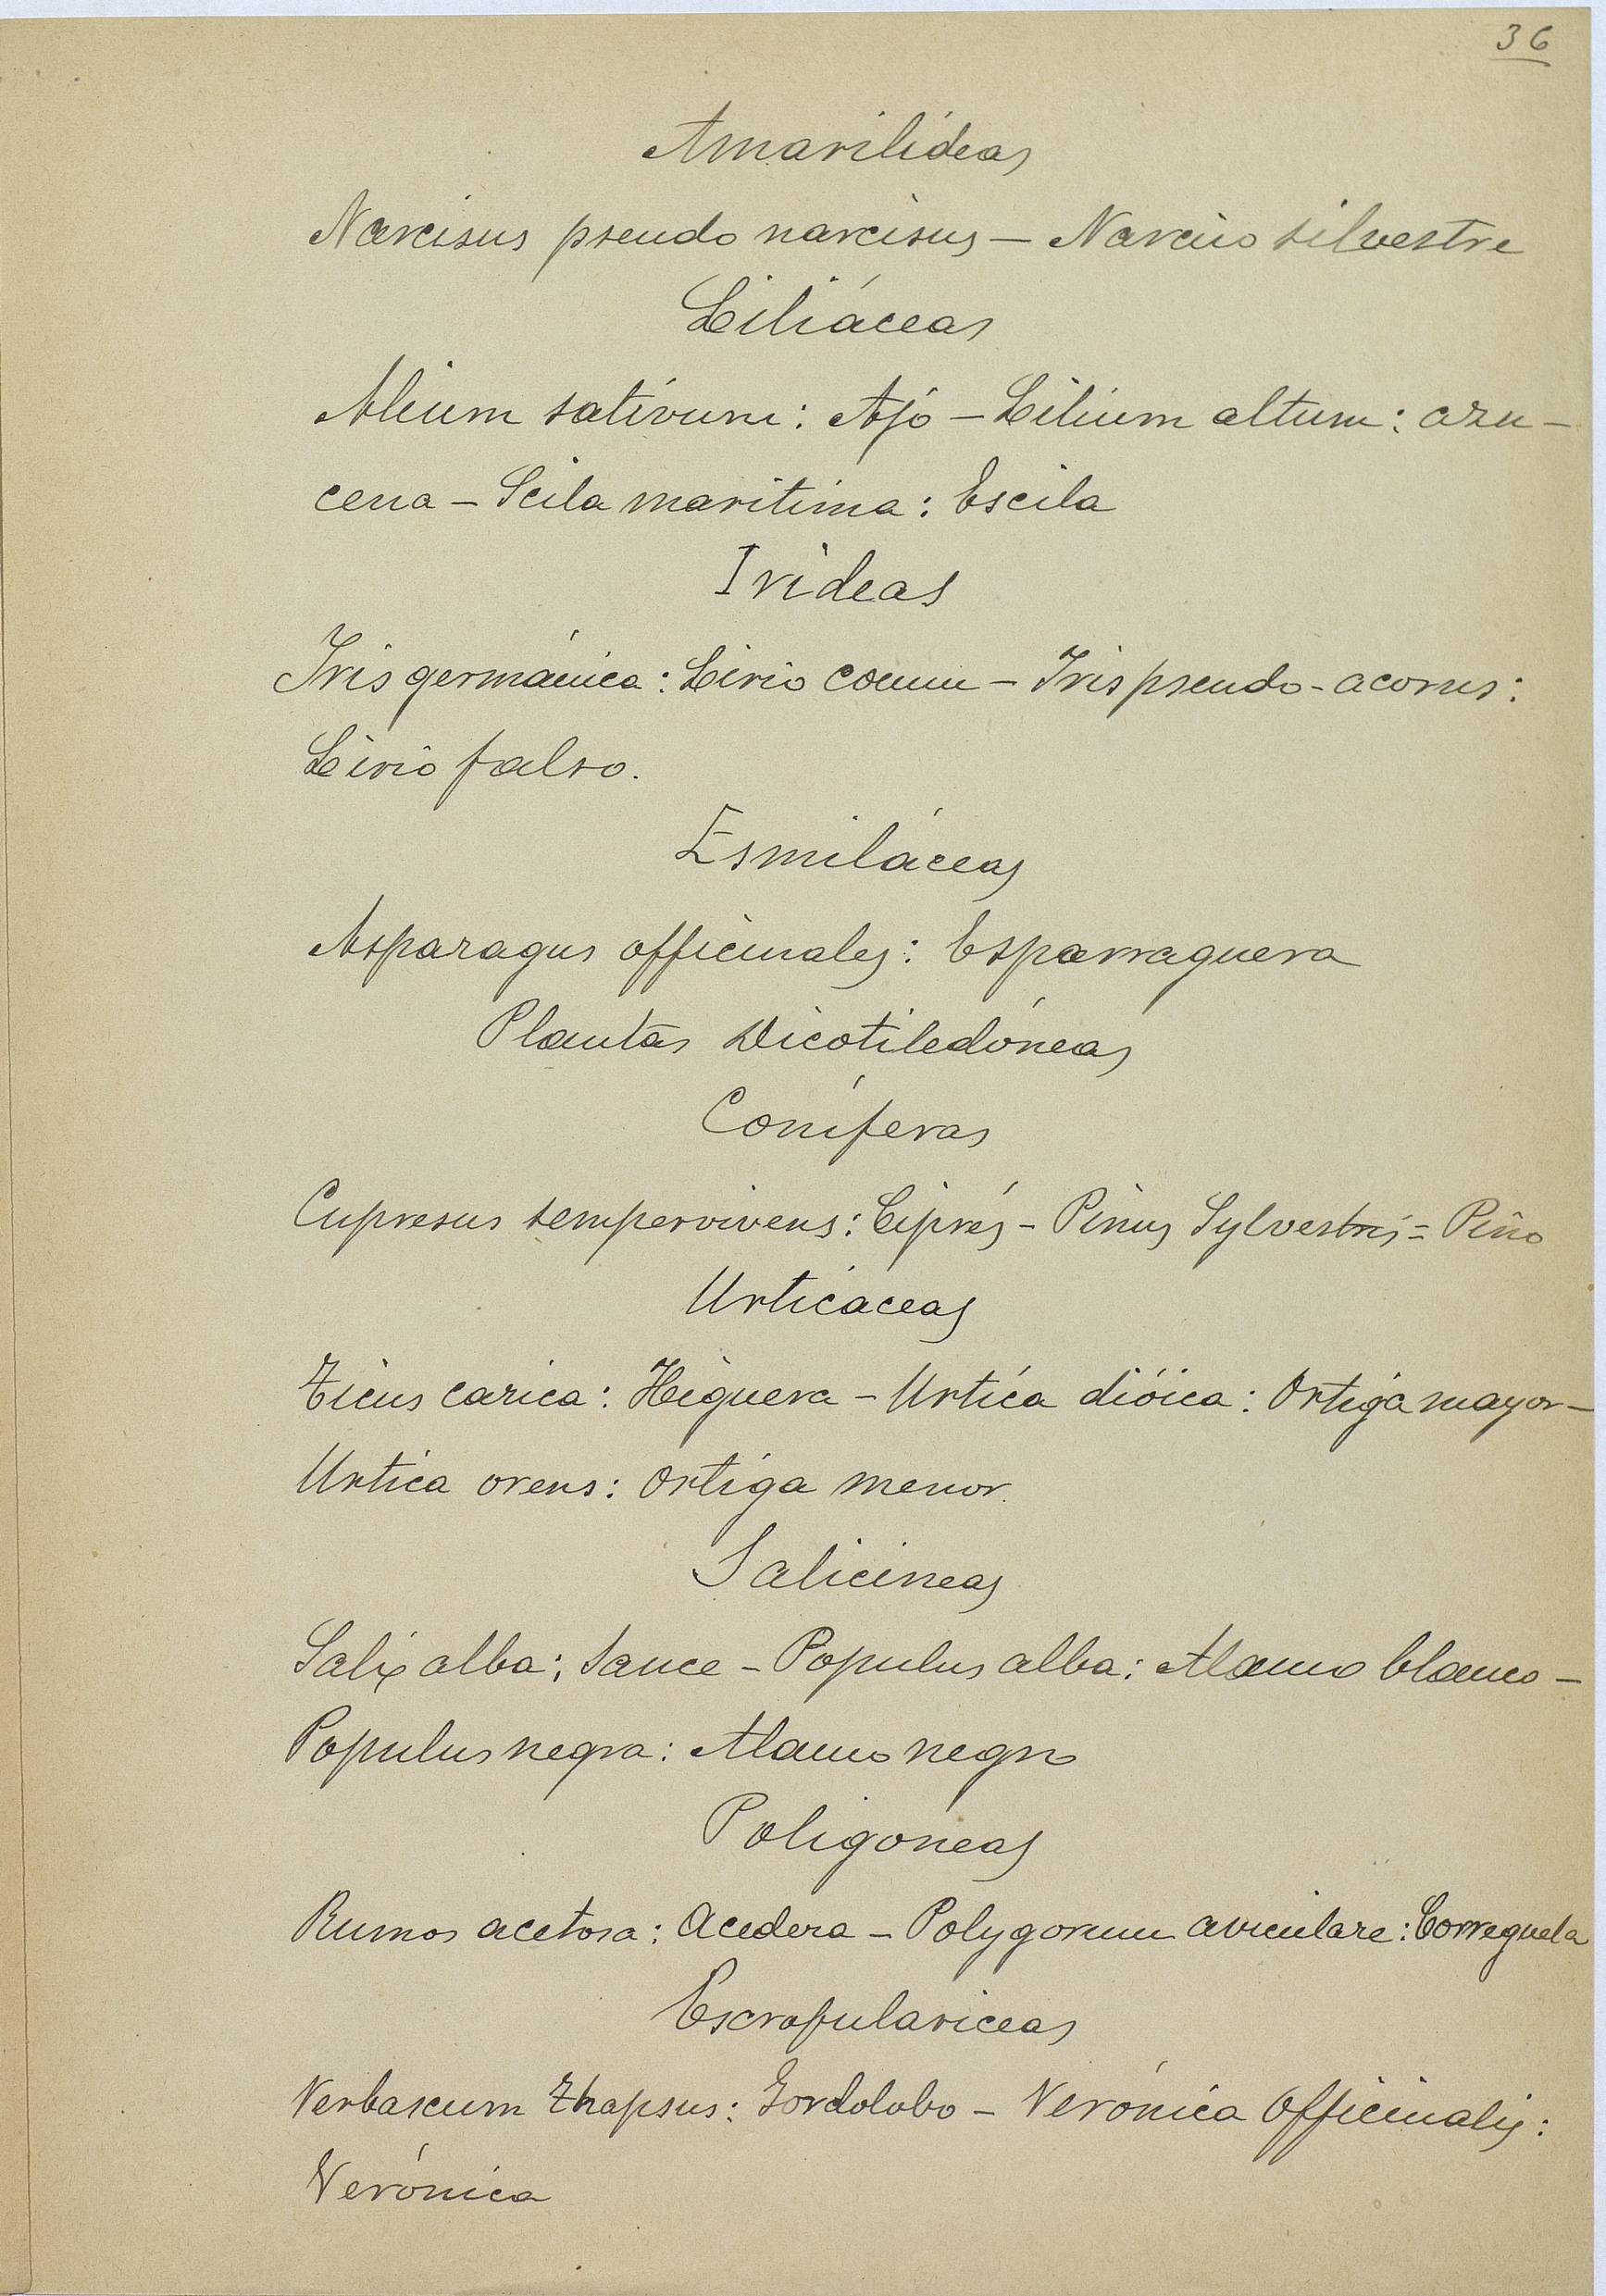 36
Amarilídeas
Narcisus pseudo narcisus — Narciso silvestre
Liliáceas
Alium sativum: Ajo — Lilium altum: azu-
cena — Scila maritima: Escila
Irideas
Iris germánica: Lirio comun — Iris pseudo-acorus:
Lirio falso.
Esmiláceas
Asparagus officinales: Esparraguera
Plantas Dicotiledóneas
Coníferas
Cupresus sempervivens: Ciprés — Pinus Sylvestris = Pino
Urticaceas
Ficus carica: Higuera — Urtica dióica: Ortiga mayor —
Urtica orens: Ortiga menor.
Salicineas
Salix alba: Sauce — Populus alba: Alamo blanco —
Populus negra: Alamo negro
Poligoneas
Rumos acetosa: Acedera — Polygonum aviculare: Correguela
Escrofulariceas
Verbascum thapsus: Gordolobo — Verónica Officinalis:
Verónica